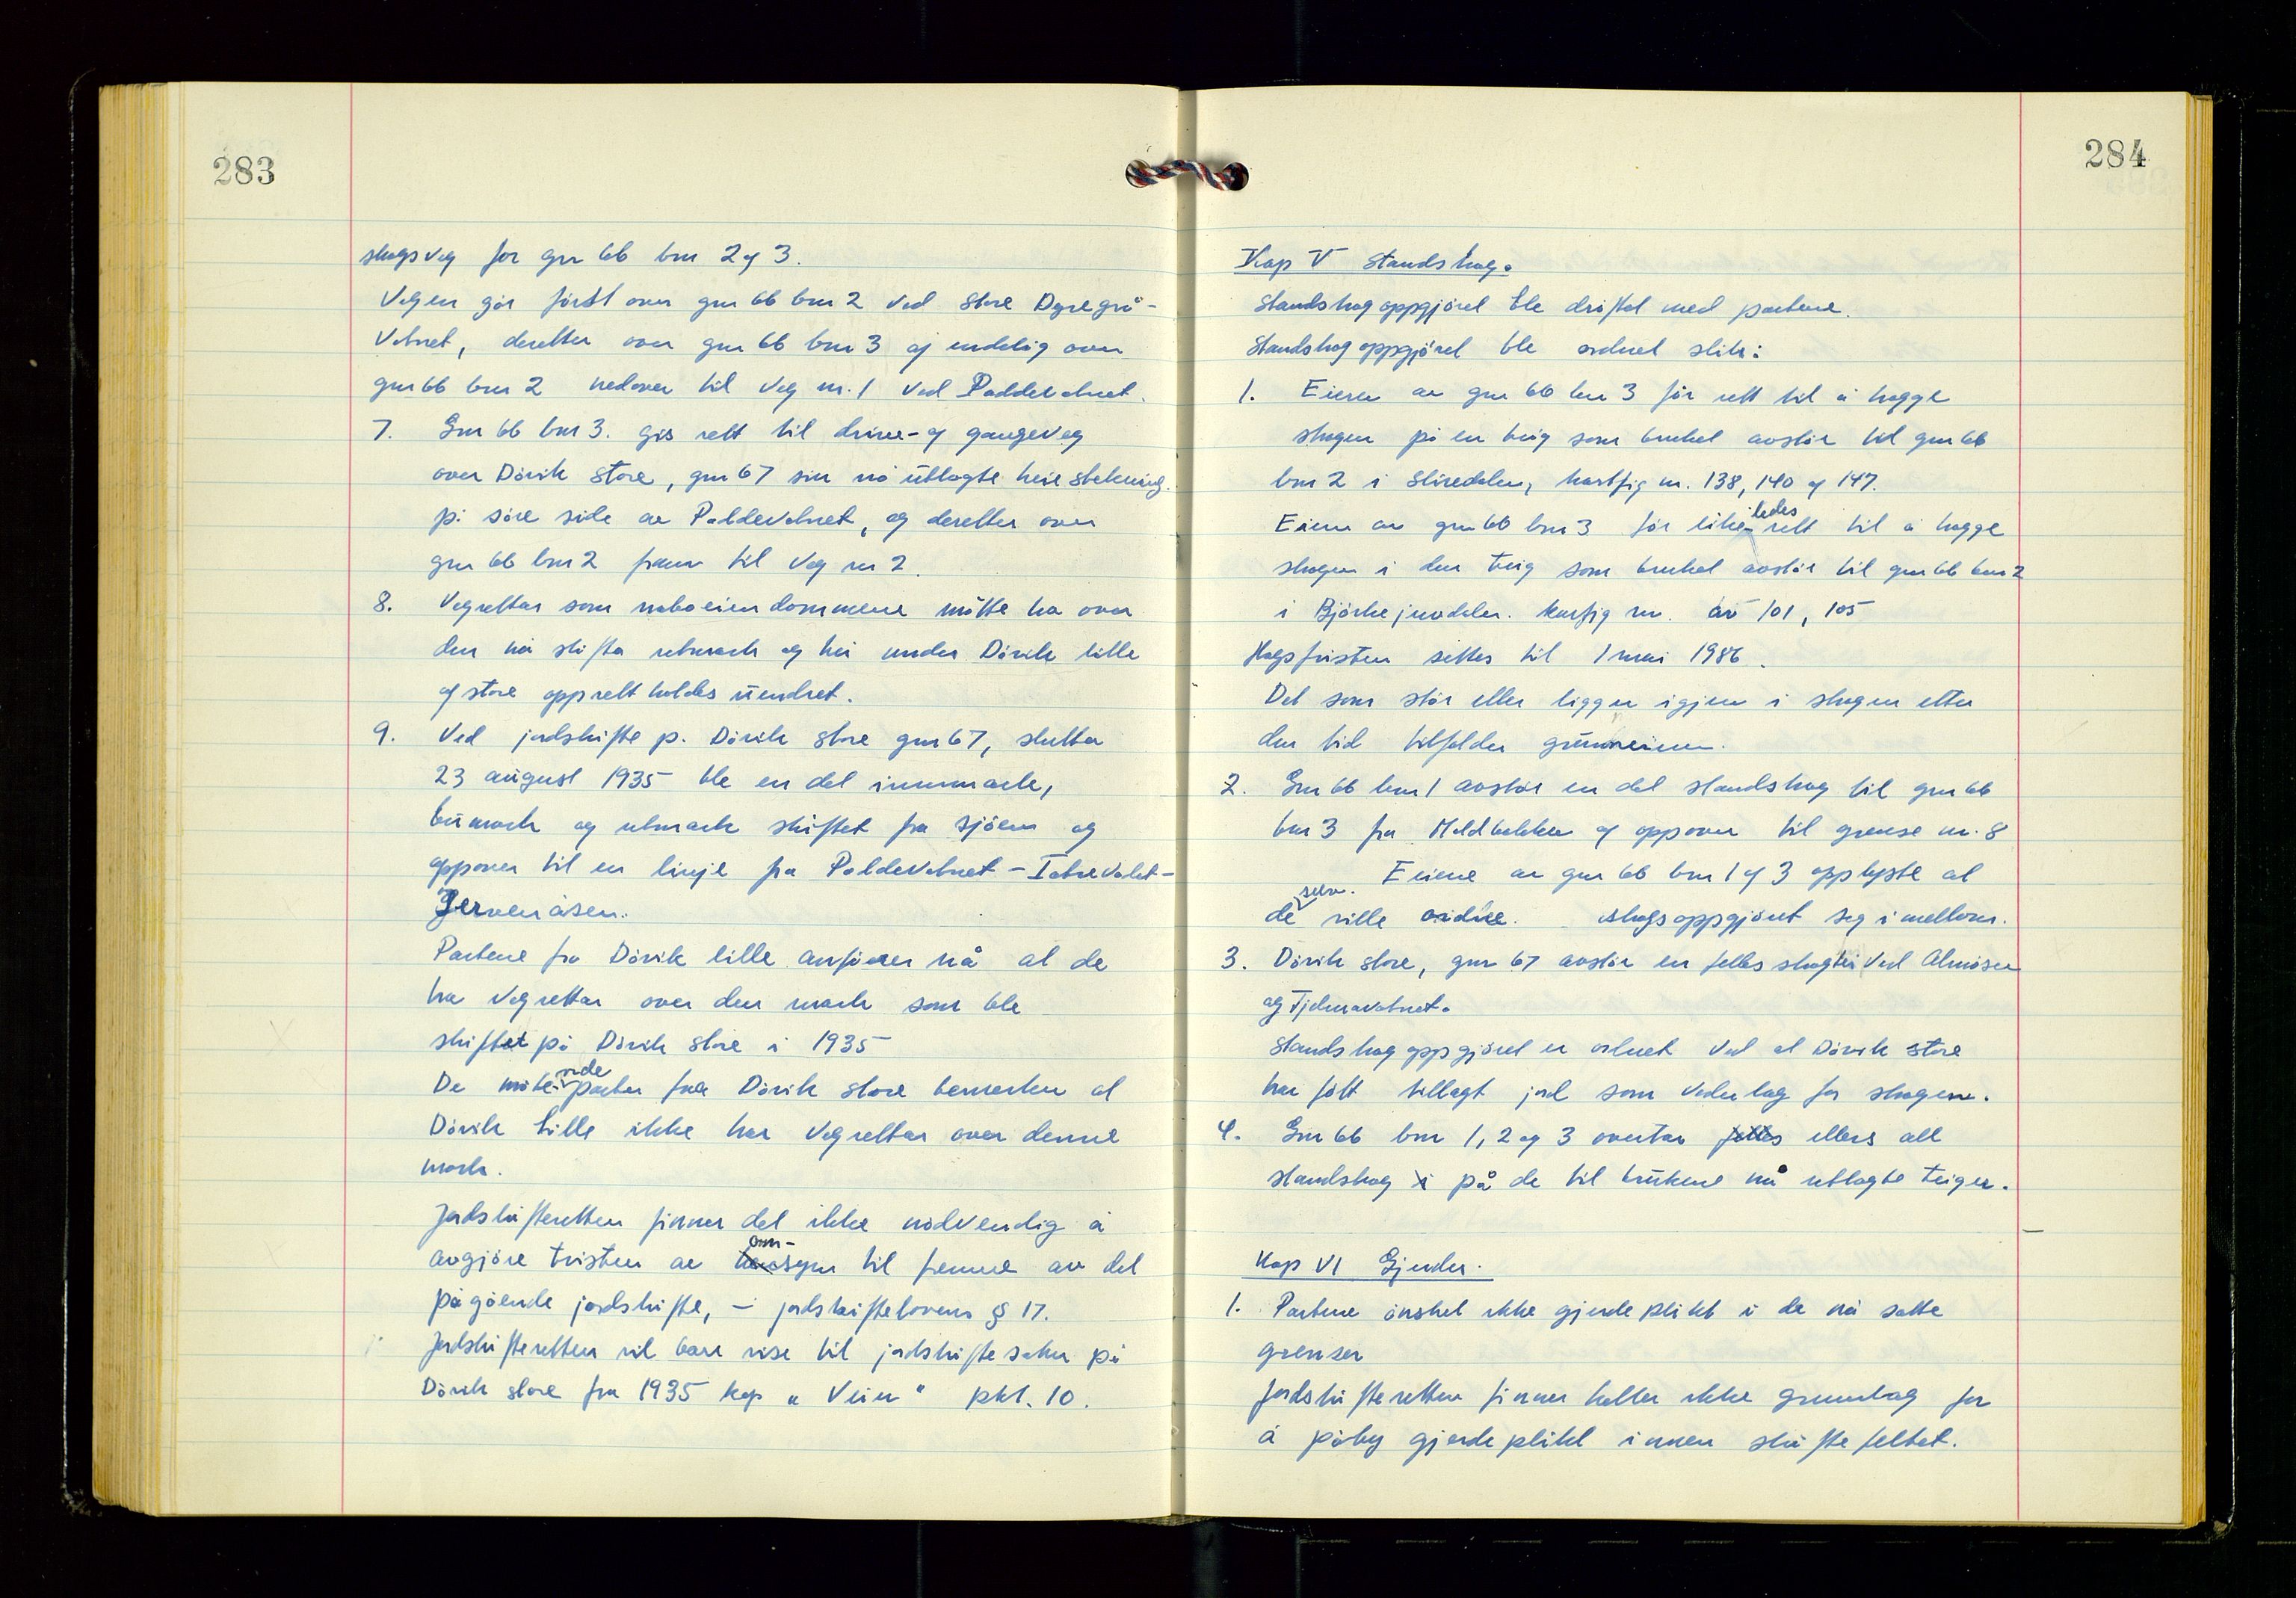 283
skogsveg for gnr 66 bnr 2 og 3.
Vegen går först over gnr 66 bnr 2 ved store Dyregrö-
vatnet, deretter over gnr 66 bnr 3 og endelig over
gnr 66 bnr 2 nedover til veg nr. 1 ved Paddevatnet.
7. Gnr 66 bnr 3. gis rett til drive- og gangeveg
over Dövik store, gnr 67 sin nå utlagte heiestrekning
på söre side av Paddevatnet, og deretter over
gnr 66 bnr 2 fram til veg nr 2.
8. Vegrettar som naboeiendommene måtte ha over
den nå skifta utmark og hei under Dövik lille
og store opprettholdes uendret.
9. Ved jordskifte p. Dövik store gnr 67, slutta
23 august 1935 ble en del innmark,
bumark og utmark skiftet fra sjöen og
oppover til en linje fra Paddevatnet –
Partene fra Dövik lille anförer nå at de
ha vegrettar over den mark som ble
skiftet på Dövik store i 1935
De möte nde parter fra Dövik store bemerker at
Dövik lille ikke har vegrettar over denne
mark.
Jordskifteretten finner det ikke nödvendig å
avgjöre tvisten av omsyn til fremme av det
pågående jordskifte, – jordskiftelovens § 17.
Jordskifteretten vil bare vise til jordskiftesaken på
Dövik store fra 1935 kap „ Veier “ pkt. 10.
284
Kap V Standskog.
Standskogoppgjöret ble dröftet med partene.
Standskogoppgjöret ble ordnet slik:
1. Eieren av gnr 66 bnr 3 får rett til å hogge
skogen på en teig som bruket avstår til gnr 66
bnr 2 i Sliredalen, kartfig nr. 138, 140 og 147.
Eieren av gnr 66 bnr 3 får likeledes rett til å hogge
skogen i den teig som bruket avstår til gnr 66 bnr 2
i kartfig nr. av 101, 105
Hogsfristen settes til 1 mai 1986.
Det som står eller ligger igjen i skogen etter
den tid tilfaller grunneieren.
2. Gnr 66 bnr 1 avstår en del standskog til gnr 66
bnr 3 fra Moldbekken og oppover til grense nr. 8
Eierne av gnr 66 bnr 1 og 3 opplyste at
de selv ville ordne. skogsoppgjöret seg i mellom.
3. Dövik store, gnr 67 avstår en felles skogtei ved Almåsen
og Tjelmavatnet.
Standskogoppgjöret er ordnet ved at Dövik store
har fått tillagt jord som vederlag for skogen.
4. Gnr 66 bnr 1, 2 og 3 overtar felles ellers all
standskog i på de til brukene nå utlagte teiger.
Kap VI Gjerder.
1. Partene önsket ikke gjerdeplikt i de nå satte
grenser
Jordskifteretten finner heller ikke grunnlag for
å påby gjerdeplikt innen skiftefeltet.